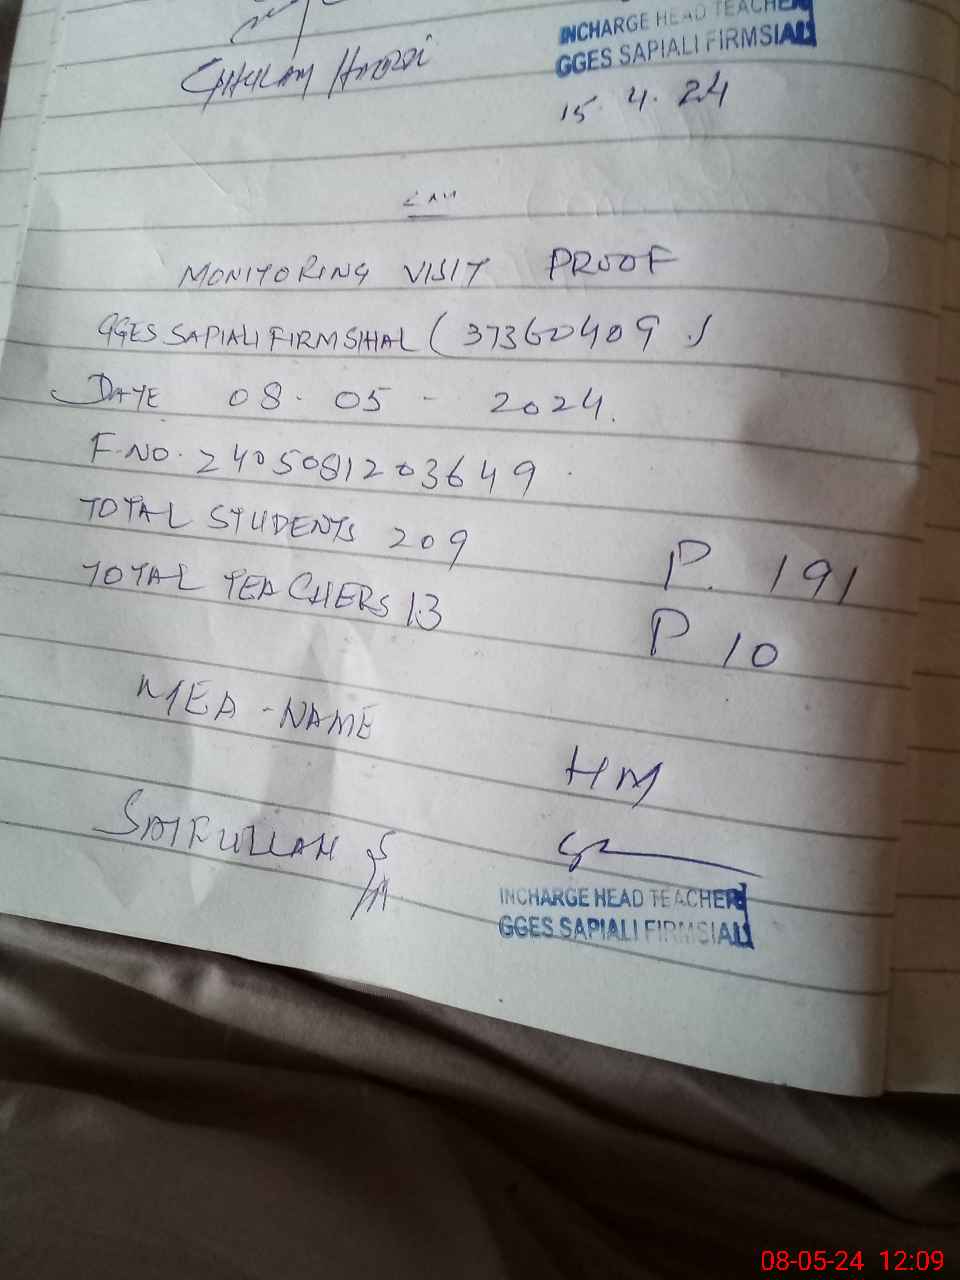 INCHARGE HEAD TEACHER
GGES SAPIALI FIRMSIAL
15.4.24
MONITORING VISIT PROOF
GGES SAPIALI FIRMSIHAL (37360409)
DATE 08-05-2024.
F.NO. 2405081203649.
TOTAL STUDENTS 209 P. 191
TOTAL TEACHERS 13 P 10
MEA-NAME
HM
SAIFULLAH
INCHARGE HEAD TEACHER
GGES SAPIALI FIRMSIAL
08-05-24 12:09